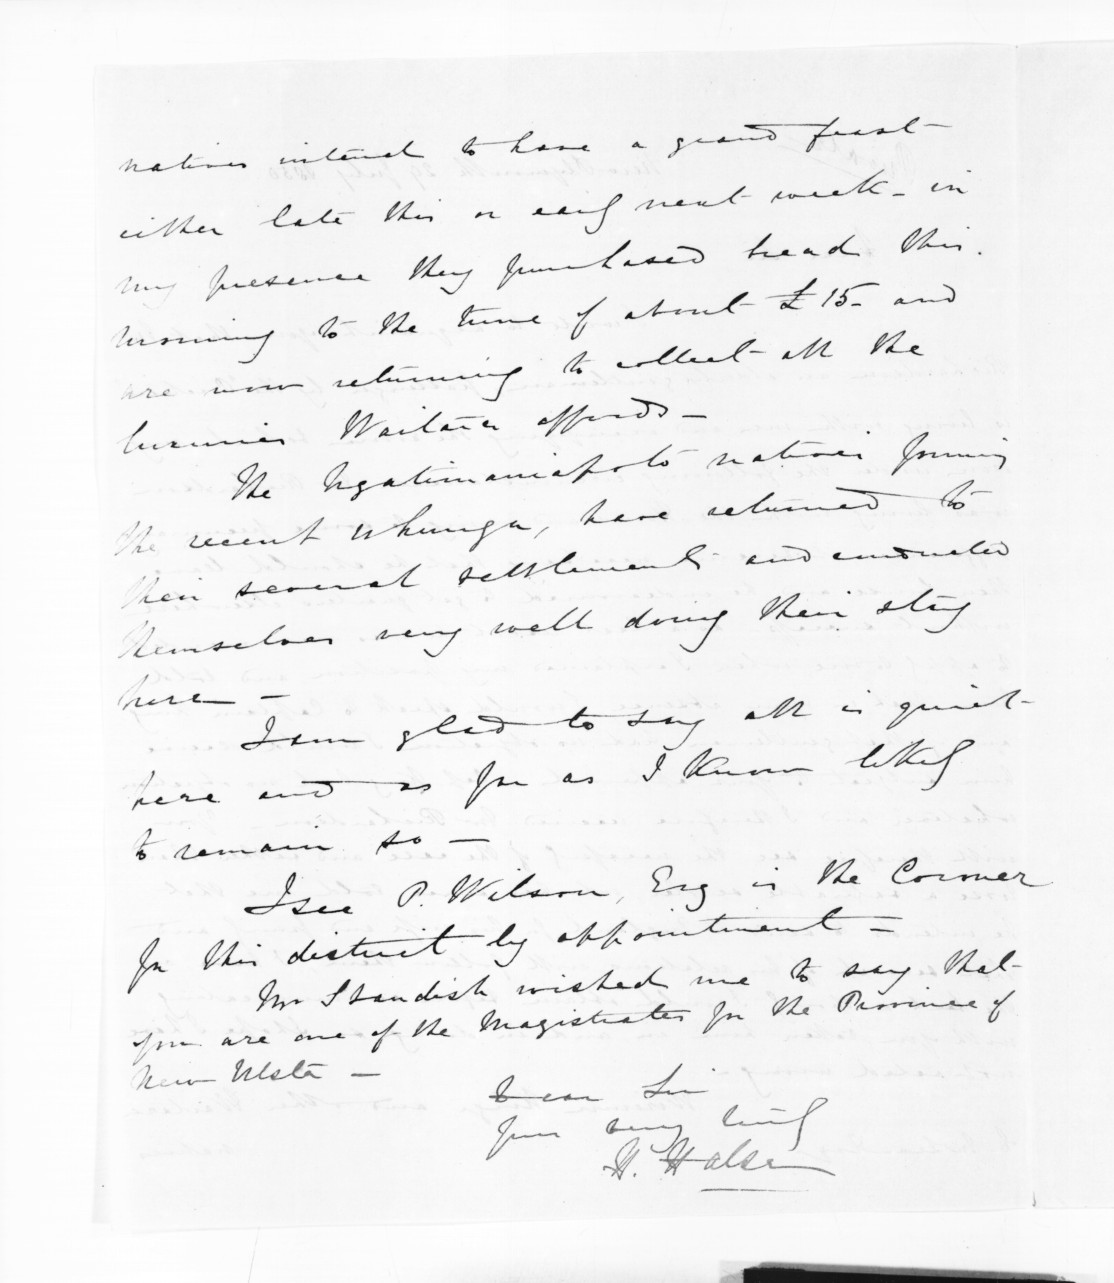 natives intend to have a grand feast
either late this or early next week - in
my presence they purchased bread this
morning to the tune of about £15 - and
are now returning to collect all the
luxuries Waitara affords -
The Ngatimaniapoto natives forming
the recent whunga, have returned to
their several settlements and conducted
themselves very well during their stay
here -
I am glad to say all is quiet
here and as far as I know likely
to remain so -
I see P. Wilson, Esq is the Coroner
for this district by appointment -
Mr Standish wished me to say that
you are one of the Magistrates for the Province of
New Ulster -
Dear Sir
Yours very truly
H. Halse